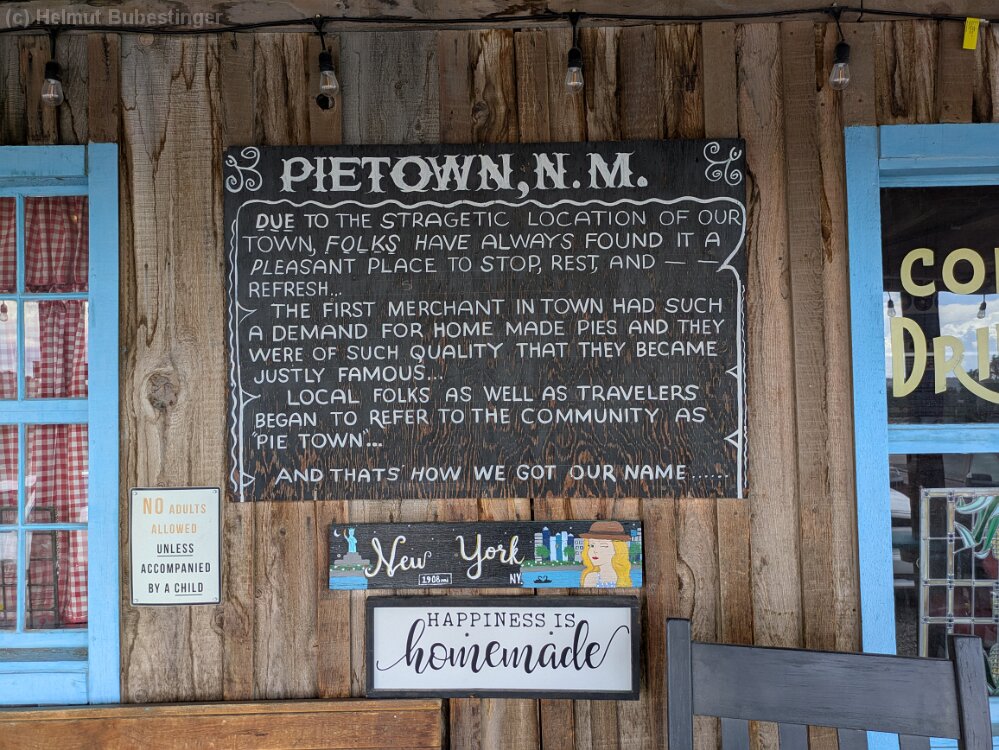 (c) Helmut Bubestinger
PIETOWN, N.M.
DUE TO THE STRAGETIC LOCATION OF OUR
TOWN, FOLKS HAVE ALWAYS FOUND IT A
PLEASANT PLACE TO STOP, REST, AND — —
REFRESH...
THE FIRST MERCHANT IN TOWN HAD SUCH
A DEMAND FOR HOME MADE PIES AND THEY
WERE OF SUCH QUALITY THAT THEY BECAME
JUSTLY FAMOUS...
LOCAL FOLKS AS WELL AS TRAVELERS
BEGAN TO REFER TO THE COMMUNITY AS
"PIE TOWN"...
AND THATS' HOW WE GOT OUR NAME......
NO ADULTS
ALLOWED
UNLESS
ACCOMPANIED
BY A CHILD
New York
1,908mi NY.
HAPPINESS IS
homemade